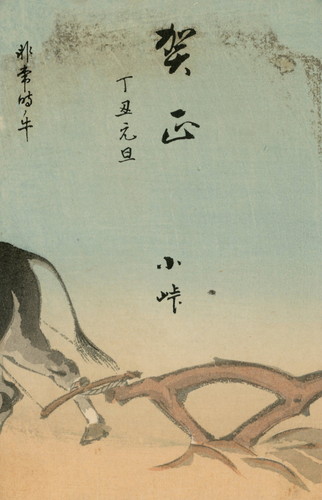 賀正
丁丑元旦
小峠
非常時ノ牛